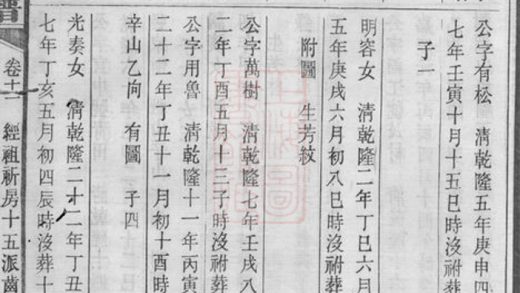 公字有松　清乾隆五年庚申四
七年壬寅十月十五巳時沒祔葬
子一
明容女　清乾隆二年丁巳六月
五年庚戌六月初八巳時沒祔葬
附圖　生芳紋
公字萬樹　清乾隆七年壬戌八
二年丁酉五月十三子時沒祔葬
公字用魯　清乾隆十一年丙寅
二十二年丁丑十一月初十酉時
辛山乙向　有圖　子四
光奏女　清乾隆二十二年丁丑
七年丁亥五月初四辰時沒葬十
卷十一　經祖祈房十五派齒